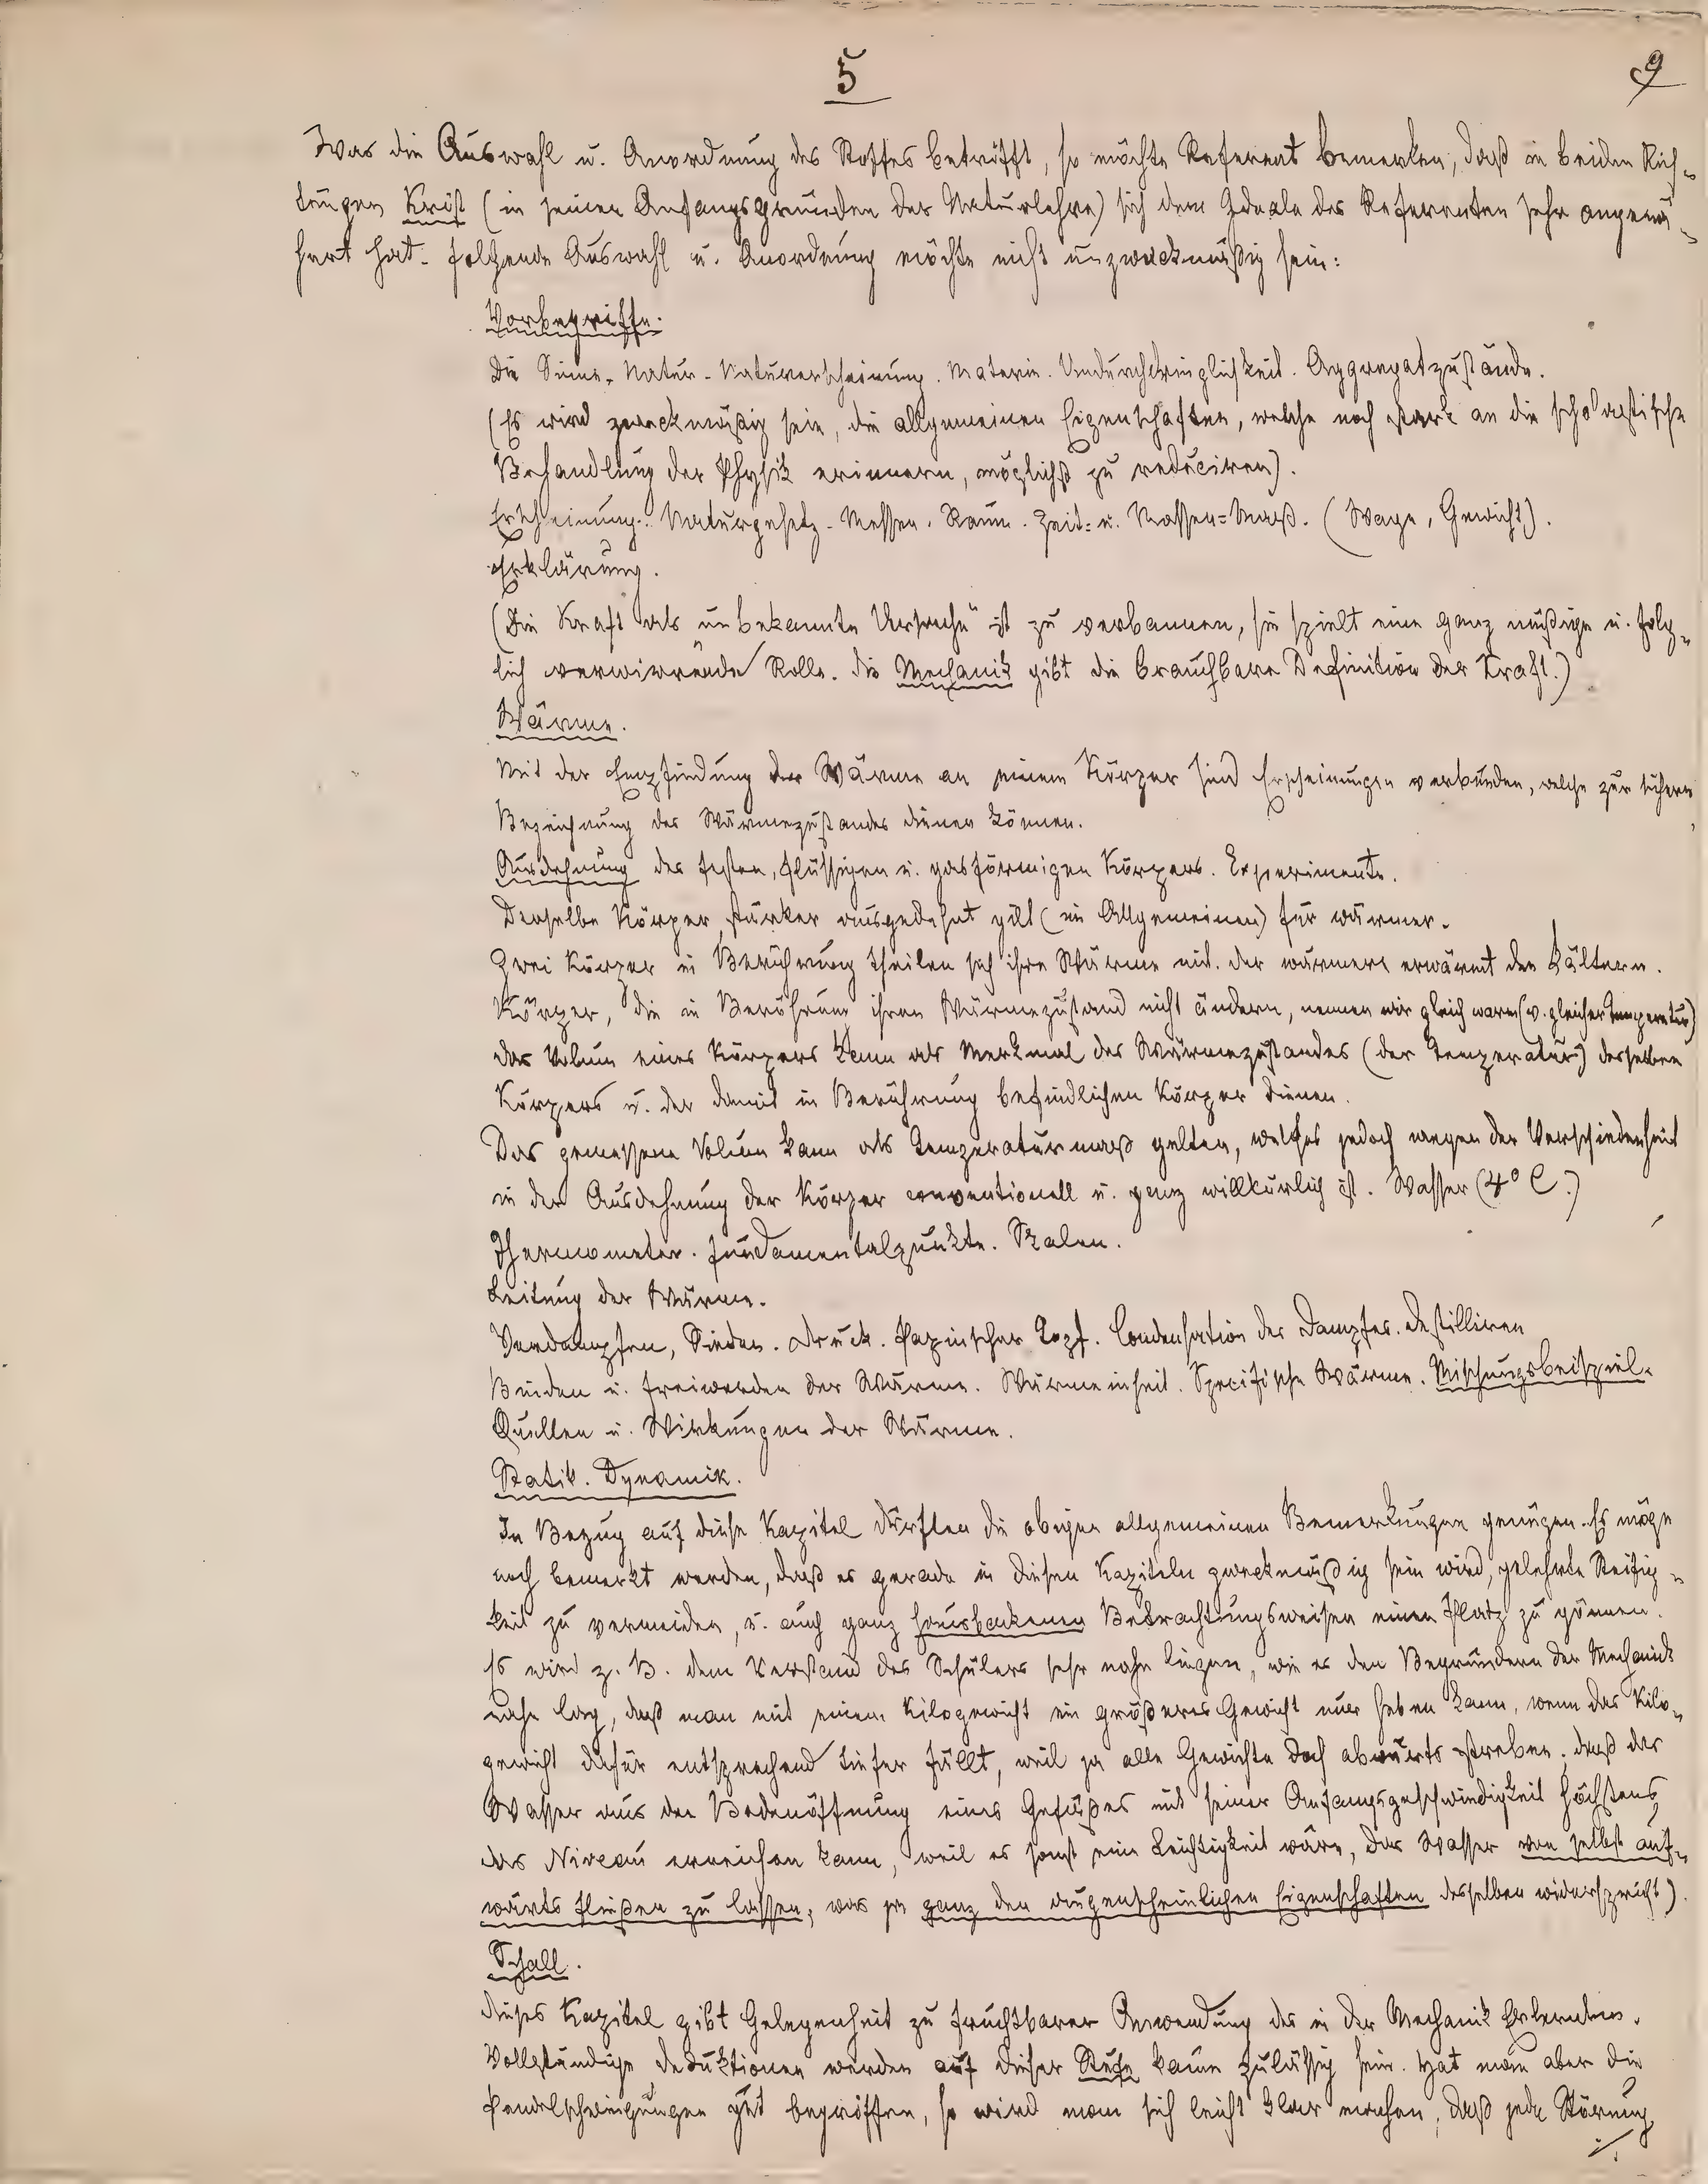 5
9
Was die Auswahl u. Anordnung des Stoffes betrifft, so möchte Referent bemerken, daß in beiden Rich-
tungen Krist (in seinen Anfangsgründen der Naturlehre) sich dem Ideale des Referenten sehr angenä-
hert hat. Folgende Auswahl u. Anordnung möchte nicht unzweckmäßig sein:
Vorbegriffe.
Die Sinne. Natur. Naturerscheinung. Materie. Undurchdringlichkeit. Aggregatzustände.
(Es wird zweckmäßig sein, die allgemeinen Eigenschaften, welche noch stark an die scholastische
Behandlung der Physik erinnern, möglichst zu reduciren).
Erscheinung. Naturgesetz. Messen. Raum. Zeit= u. Massen=Maß. (Wage, Gewicht).
Erklärung.
(Die Kraft als "unbekannte Ursache" ist zu verbannen, sie spielt eine ganz müßige u. folg-
lich verwirrende Rolle. Die Mechanik gibt die brauchbare Definition der Kraft.)
Wärme.
Mit der Empfindung der Wärme an einem Körper sind Erscheinungen verbunden, welche zur sichern
Bezeichnung des Wärmezustandes dienen können.
Ausdehnung des festen, flüssigen u. gasförmigen Körpers. Experimente.
Derselbe Körper stärker ausgedehnt gilt (im Allgemeinen) für wärmer.
Zwei Körper in Berührung theilen sich ihre Wärme mit. Der wärmere erwärmt den kältern.
Körper, die in Berührung ihren Wärmezustand nicht ändern, nennen wir gleich warm (v. gleicher Temperatur)
Das Volum eines Körpers kann als Merkmal des Wärmezustandes (der Temperatur) desselben
Körpers u. der damit in Berührung befindlichen Körper dienen.
Das gemessene Volum kann als Temperaturmaß gelten, welches jedoch wegen der Verschiedenheit
in der Ausdehnung der Körper conventionell u. ganz willkürlich ist. Wasser (4° C.)
Thermometer. Fundamentalpunkte. Skalen.
Leitung der Wärme.
Verdampfen, Sieden. Druck. Papinscher Topf. Condensation des Dampfes. Destilliren
Binden u. Freiwerden der Wärme. Wärmeeinheit. Specifische Wärme. Mischungsbeispiel.
Quellen u. Wirkungen der Wärme.
Statik. Dynamik.
In Bezug auf diese Kapitel dürften die obigen allgemeinen Bemerkungen genügen. Es möge
noch bemerkt werden, daß es gerade in diesen Kapiteln zweckmäßig sein wird, gelehrte Steifig-
keit zu vermeiden, u. auch ganz hausbackenen Betrachtungsweisen einen Platz zu gönnen.
Es wird z. B. dem Verstand des Schülers sehr nahe liegen, wie es den Begründern der Mechanik
nahe lag, daß man mit einem Kilogewicht ein größeres Gewicht nur heben kann, wenn das Kilo-
gewicht dafür entsprechend tiefer fällt, weil ja alle Gewichte doch abwärts streben; daß das
Wasser aus der Bodenöffnung eines Gefäßes mit seiner Anfangsgeschwindigkeit höchstens
das Niveau erreichen kann, weil es sonst eine Leichtigkeit wäre, das Wasser von selbst auf-
wärts fließen zu lassen, was ja ganz den augenscheinlichen Eigenschaften desselben widerspricht).
Schall.
Dieses Kapitel gibt Gelegenheit zu fruchtbarer Anwendung des in der Mechanik Erlernten.
Vollständige Deduktionen werden auf dieser Stufe kaum zulässig sein. Hat man aber die
Pendelschwingungen gut begriffen, so wird man sich leicht klar machen, daß jede Störung
./.